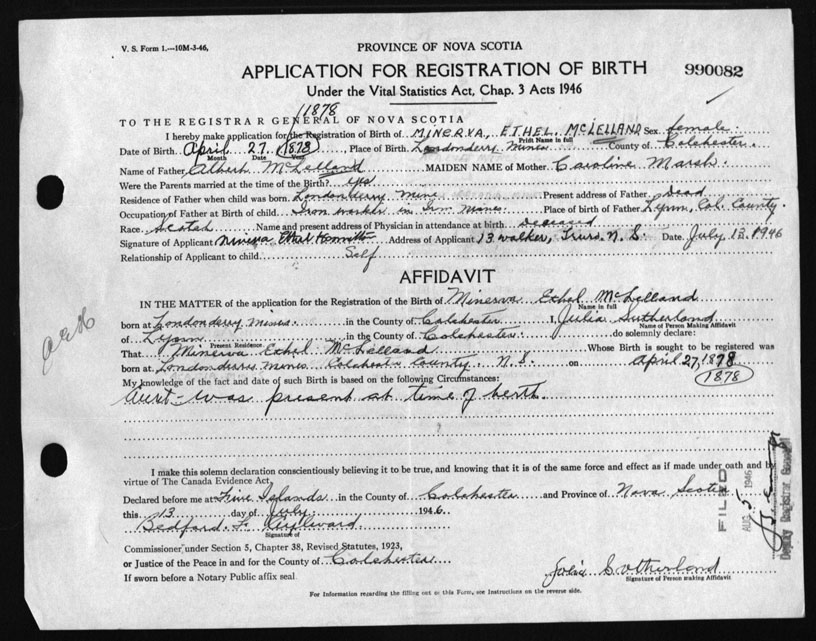 V. S. Form 1.—10M-3-46,
PROVINCE OF NOVA SCOTIA
APPLICATION FOR REGISTRATION OF BIRTH
990082
Under the Vital Statistics Act, Chap. 3 Acts 1946
11878
TO THE REGISTRAR GENERAL OF NOVA SCOTIA
I hereby make application for the Registration of Birth of MINERVA, ETHEL. McLELLAND Sex female.
Print Name in full
Date of Birth April 27. 1878 Place of Birth Londonderry Mines County of Colchester.
Month Date Year
Name of Father Albert McLelland MAIDEN NAME of Mother Caroline Marsh.
Were the Parents married at the time of the Birth? yes
Residence of Father when child was born. Londonderry Mine Present address of Father Dead
Occupation of Father at Birth of child. Iron worker in Iron Mines. Place of birth of Father Lynn, Col. County.
Race. Scotch Name and present address of Physician in attendance at birth deceased
Signature of Applicant Minerva Ethel Address of Applicant 13 Walker, Truro. N. S. Date. July 12. 1946
Relationship of Applicant to child Self
AFFIDAVIT
IN THE MATTER of the application for the Registration of the Birth of Minerva Ethel McLelland
Name in full
born at Londonderry Mines in the County of Colchester I, Julia Sutherland
Name of Person Making Affidavit
of in the County of Colchester. do solemnly declare:
Present Residence
That Minerva Ethel McLelland Whose Birth is sought to be registered was
born at Londonderry Mines Colchester County. N. S. on April 27, 1878
1878
My knowledge of the fact and date of such Birth is based on the following Circumstances:
Aunt - was present at time of berth.
I make this solemn declaration conscientiously believing it to be true, and knowing that it is of the same force and effect as if made under oath and by
virtue of The Canada Evidence Act.
Declared before me at Five Islands in the County of Colchester and Province of Nova Scotia
this 13 day of July 1946
Bedford F.
Signature of
Commissioner under Section 5, Chapter 38, Revised Statutes, 1923,
or Justice of the Peace in and for the County of Colchester
If sworn before a Notary Public affix seal
Julia Sutherland
Signature of Person making Affidavit
FILED
AUG 5 1946
Deputy Registrar General
For Information regarding the filling out of this Form, see Instructions on the reverse side.